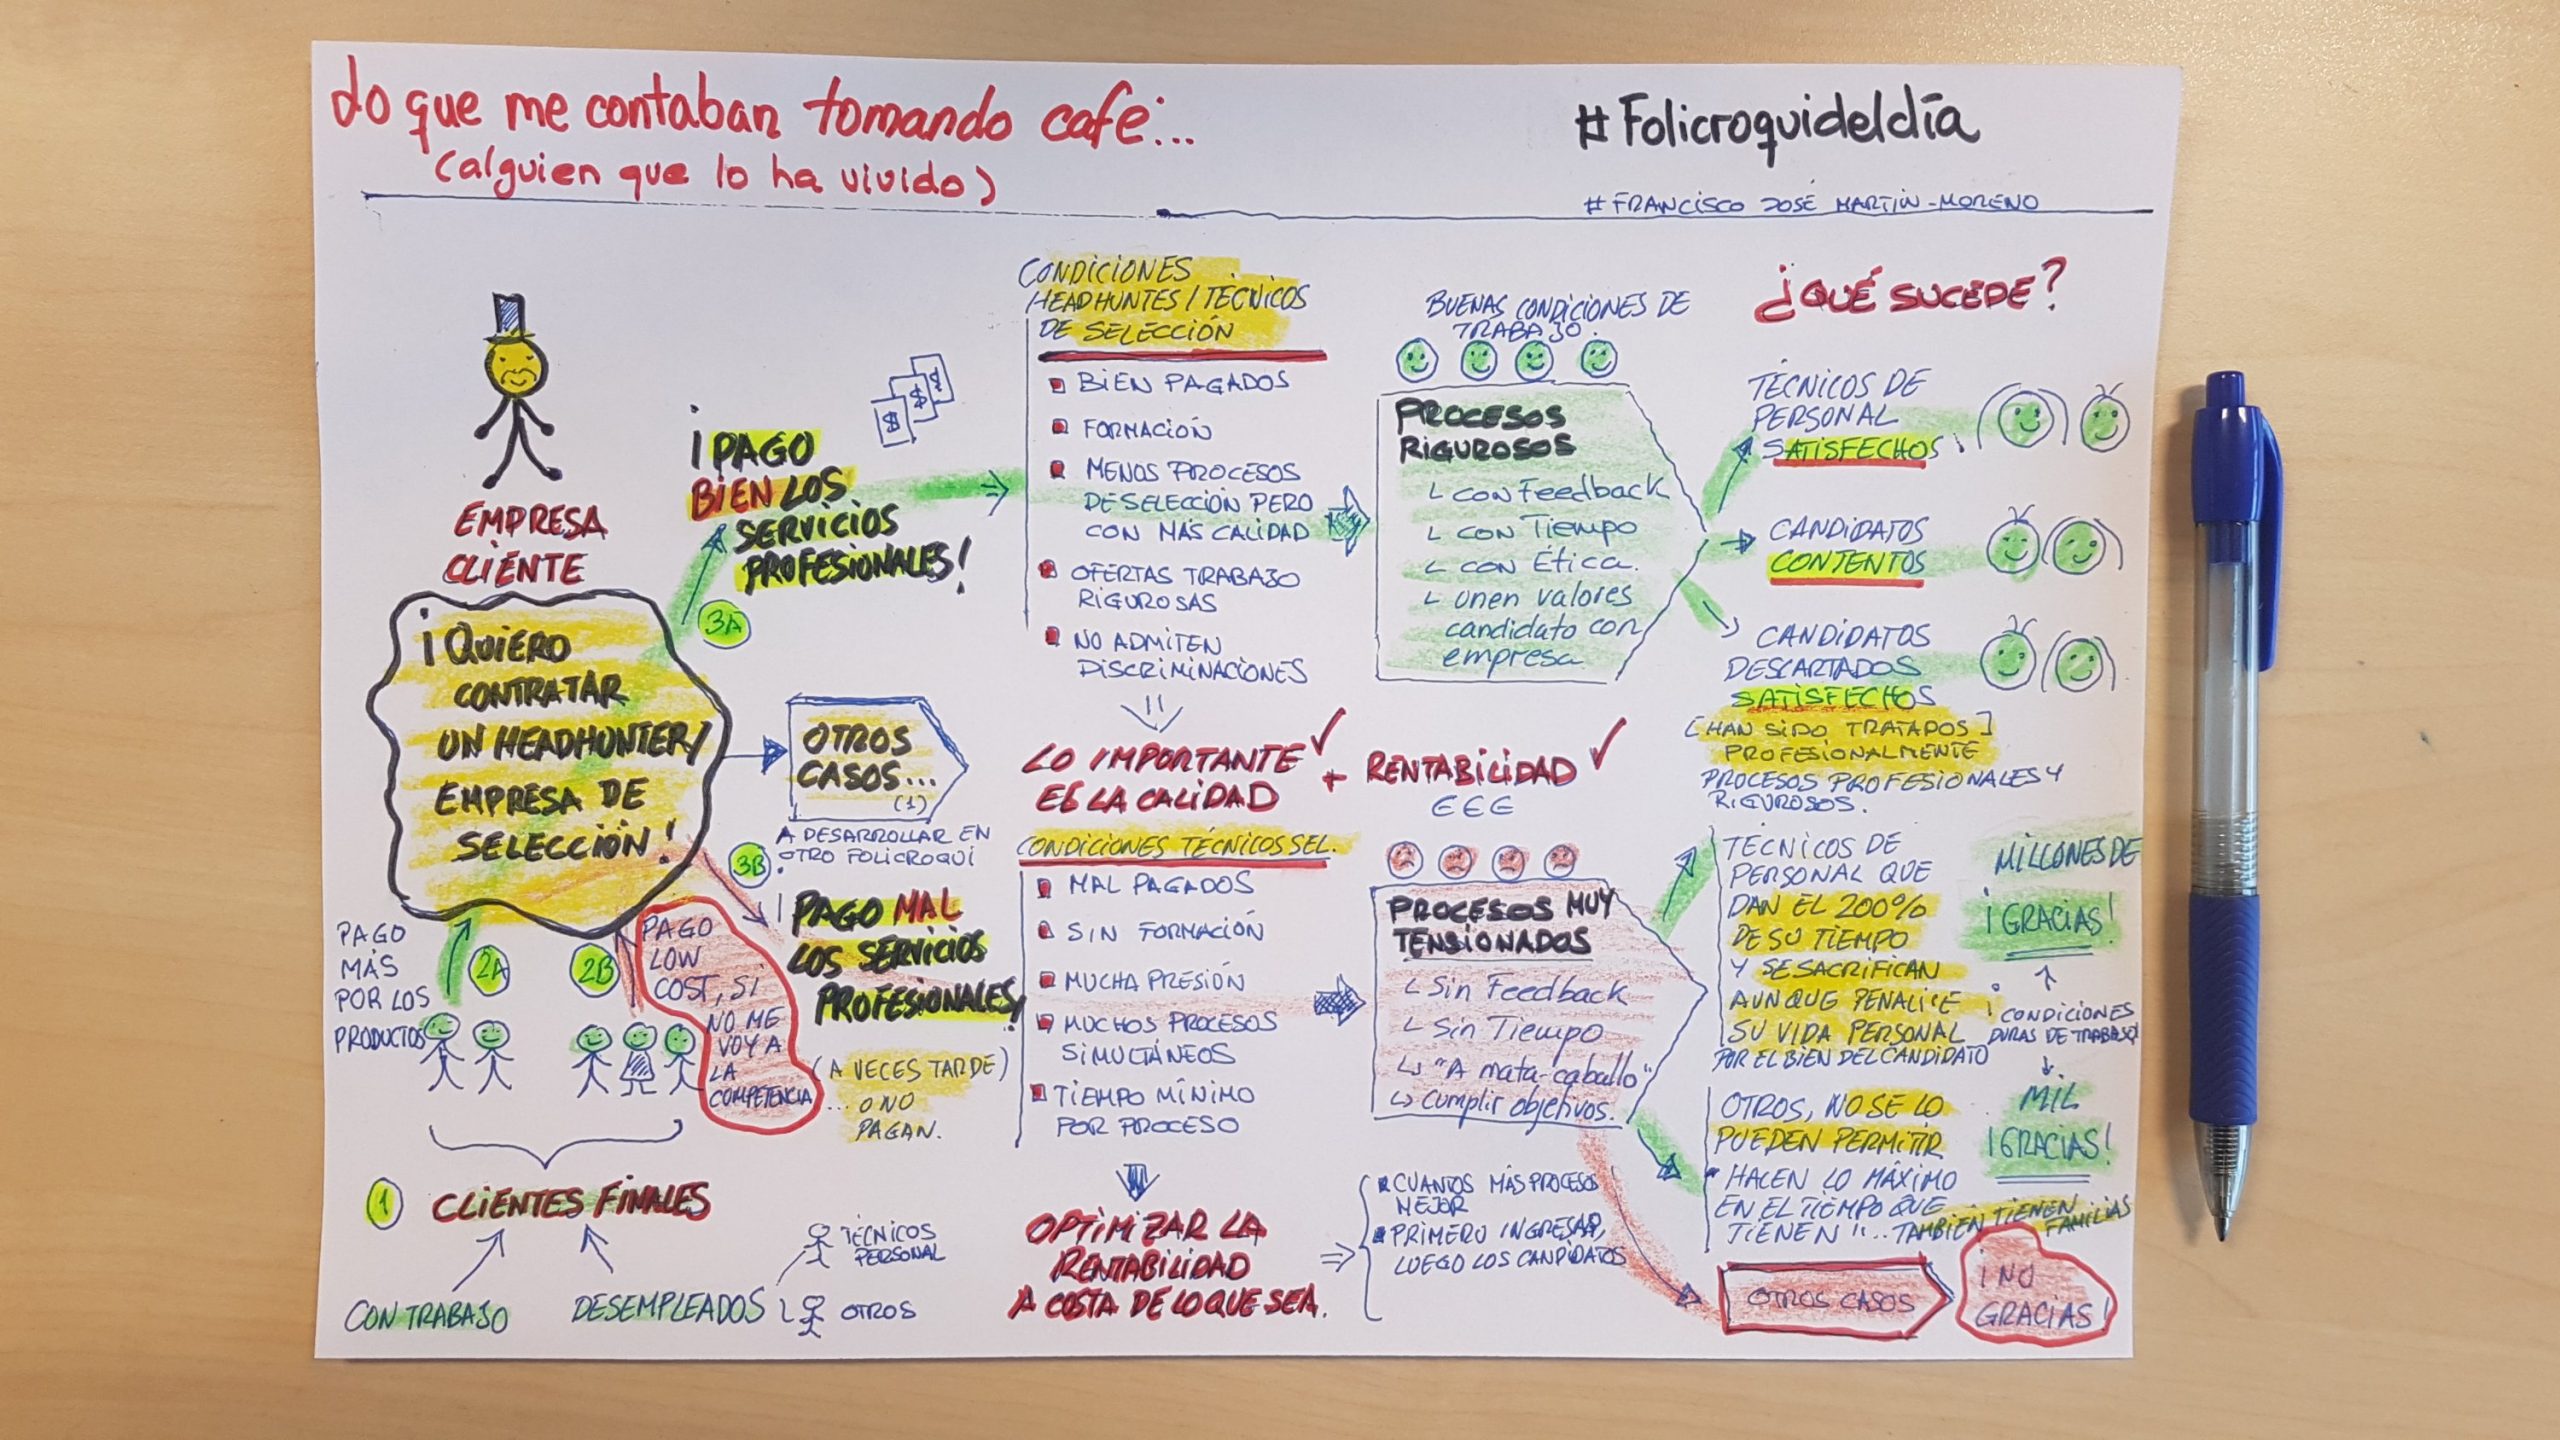 Lo que me contaban tomando café...
(alguien que lo ha vivido)
#Folicroquideldía
#FRANCISCO JOSÉ MARTÍN-MORENO
EMPRESA
CLIENTE
¡QUIERO
CONTRATAR
UN HEADHUNTER/
EMPRESA DE
SELECCIÓN!
PAGO
MÁS
POR LOS
PRODUCTOS
2A
2B
PAGO
LOW
COST, SI
NO ME
VOY A
LA
COMPETENCIA
1
CLIENTES FINALES
CON TRABAJO
DESEMPLEADOS
TÉCNICOS
PERSONAL
OTROS
3A
¡PAGO
BIEN LOS
SERVICIOS
PROFESIONALES!
$
$
$
OTROS
CASOS...
(1)
A DESARROLLAR EN
OTRO FOLICROQUI
3B
¡PAGO MAL
LOS SERVICIOS
PROFESIONALES!
(A VECES TARDE)
... O NO
PAGAN.
CONDICIONES
HEADHUNTES/TÉCNICOS
DE SELECCIÓN
BIEN PAGADOS
FORMACIÓN
MENOS PROCESOS
DE SELECCIÓN PERO
CON MÁS CALIDAD
OFERTAS TRABAJO
RIGUROSAS
NO ADMITEN
DISCRIMINACIONES
LO IMPORTANTE
ES LA CALIDAD
+ RENTABILIDAD
€€€
CONDICIONES TÉCNICOS SEL.
MAL PAGADOS
SIN FORMACIÓN
MUCHA PRESIÓN
MUCHOS PROCESOS
SIMULTÁNEOS
TIEMPO MÍNIMO
POR PROCESO
OPTIMIZAR LA
RENTABILIDAD
A COSTA DE LO QUE SEA.
CUANTOS MÁS PROCESOS
MEJOR
PRIMERO INGRESAR,
LUEGO LOS CANDIDATOS
BUENAS CONDICIONES DE
TRABAJO.
PROCESOS
RIGUROSOS
con Feedback
con Tiempo
con Ética.
Unen valores
candidato con
empresa
PROCESOS MUY
TENSIONADOS
Sin Feedback
Sin Tiempo
"A mata-caballo"
Cumplir objetivos.
¿QUÉ SUCEDE?
TÉCNICOS DE
PERSONAL
SATISFECHOS!
CANDIDATOS
CONTENTOS
CANDIDATOS
DESCARTADOS
SATISFECHOS
[HAN SIDO TRATADOS]
PROFESIONALMENTE
PROCESOS PROFESIONALES Y
RIGUROSOS.
TÉCNICOS DE
PERSONAL QUE
DAN EL 200%
DE SU TIEMPO
Y SE SACRIFICAN
AUNQUE PENALICE
SU VIDA PERSONAL
POR EL BIEN DEL CANDIDATO
MILLONES DE
¡GRACIAS!
¡CONDICIONES
DURAS DE TRABAJO!
MIL
¡GRACIAS!
OTROS, NO SE LO
PUEDEN PERMITIR
HACEN LO MÁXIMO
EN EL TIEMPO QUE
TIENEN "... TAMBIÉN TIENEN
FAMILIAS
OTROS CASOS
¡NO
GRACIAS!